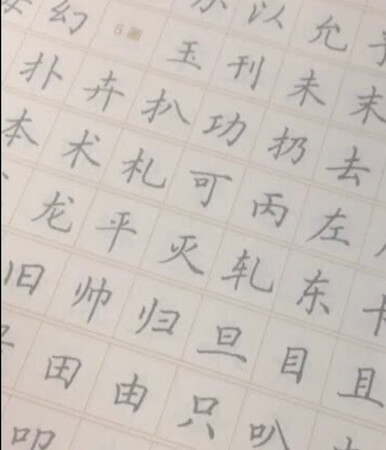 幻 以 允
5画 玉 刊 未 末
扑 卉 扒 功 扔 去
本 术 札 可 丙 左
龙 平 灭 轧 东
旧 帅 归 旦 目 且
田 由 只 叭
叩